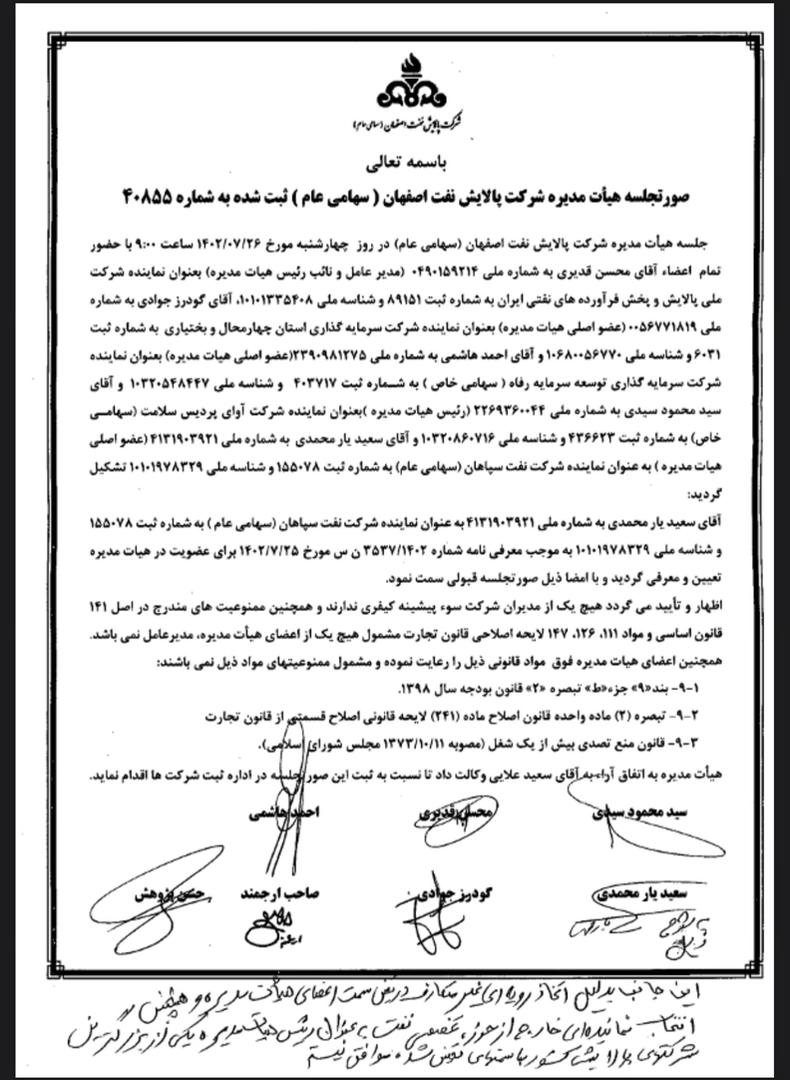 شرکت پالایش نفت اصفهان (سهامی عام)
باسمه تعالی
صورتجلسه هیأت مدیره شرکت پالایش نفت اصفهان ( سهامی عام ) ثبت شده به شماره ۴۰۸۵۵
جلسه هیأت مدیره شرکت پالایش نفت اصفهان (سهامی عام) در روز چهارشنبه مورخ ۱۴۰۲/۰۷/۲۶ ساعت ۹:۰۰ با حضور
تمام اعضاء آقای محسن قدیری به شماره ملی ۰۴۹۰۱۵۹۲۱۴ (مدیر عامل و نائب رئیس هیات مدیره) بعنوان نماینده شرکت
ملی پالایش و پخش فرآورده های نفتی ایران به شماره ثبت ۸۹۱۵۱ و شناسه ملی ۱۰۱۰۱۳۳۵۴۰۸، آقای گودرز جوادی به شماره
ملی ۰۰۵۶۷۷۱۸۱۹ (عضو اصلی هیات مدیره) بعنوان نماینده شرکت سرمایه گذاری استان چهارمحال و بختیاری به شماره ثبت
۶۰۳۱ و شناسه ملی ۱۰۶۸۰۰۵۶۷۷۰ و آقای احمد هاشمی به شماره ملی ۲۳۹۰۹۸۱۲۷۵(عضو اصلی هیات مدیره) بعنوان نماینده
شرکت سرمایه گذاری توسعه سرمایه رفاه ( سهامی خاص ) به شـماره ثبت ۴۰۳۷۱۷ و شناسه ملی ۱۰۳۲۰۵۴۸۴۴۷ و آقای
سید محمود سیدی به شماره ملی ۲۲۶۹۳۶۰۰۴۴ (رئیس هیات مدیره )بعنوان نماینده شرکت آوای پردیس سلامت (سهامـی
خاص) به شماره ثبت ۴۳۶۶۲۳ و شناسه ملی ۱۰۳۲۰۸۶۰۷۱۶ و آقای سعید یار محمدی به شماره ملی ۴۱۳۱۹۰۳۹۲۱ (عضو اصلی
هیات مدیره ) به عنوان نماینده شرکت نفت سپاهان (سهامی عام) به شماره ثبت ۱۵۵۰۷۸ و شناسه ملی ۱۰۱۰۱۹۷۸۳۲۹ تشکیل
گردید:
آقای سعید یار محمدی به شماره ملی ۴۱۳۱۹۰۳۹۲۱ به عنوان نماینده شرکت نفت سپاهان (سهامی عام ) به شماره ثبت ۱۵۵۰۷۸
و شناسه ملی ۱۰۱۰۱۹۷۸۳۲۹ به موجب معرفی نامه شماره ۳۵۳۷/۱۴۰۲ ن س مورخ ۱۴۰۲/۷/۲۵ برای عضویت در هیات مدیره
تعیین و معرفی گردید و با امضا ذیل صورتجلسه قبولی سمت نمود.
اظهار و تأیید می گردد هیچ یک از مدیران شرکت سوء پیشینه کیفری ندارند و همچنین ممنوعیت های مندرج در اصل ۱۴۱
قانون اساسی و مواد ۱۱۱، ۱۲۶، ۱۴۷ لایحه اصلاحی قانون تجارت مشمول هیچ یک از اعضای هیأت مدیره، مدیرعامل نمی باشد.
همچنین اعضای هیات مدیره فوق مواد قانونی ذیل را رعایت نموده و مشمول ممنوعیتهای مواد ذیل نمی باشند:
۹-۱- بند«۹» جزء«ط» تبصره «۲» قانون بودجه سال ۱۳۹۸.
۹-۲- تبصره (۲) ماده واحده قانون اصلاح ماده (۲۴۱) لایحه قانونی اصلاح قسمتی از قانون تجارت
۹-۳- قانون منع تصدی بیش از یک شغل (مصوبه ۱۳۷۳/۱۰/۱۱ مجلس شورای اسلامی).
هیأت مدیره به اتفاق آراء به آقای سعید علایی وکالت داد تا نسبت به ثبت این صورتجلسه در اداره ثبت شرکت ها اقدام نماید.
سید محمود سیدی محسن قدیری احمد هاشمی
سعید یار محمدی گودرز جوادی صاحب ارجمند حسن پژوهش
این جانب بدلیل اتخاذ رویه ای غیر متعارف در تعویض سمت اعضای هیأت مدیره و همچنین
انتخاب نماینده ای خارج از حوزه تخصصی نفت به عنوان رئیس هیات مدیره یکی از بزرگترین
شرکتهای پالایش کشور با سمتهای تعیین شده موافق نیستم